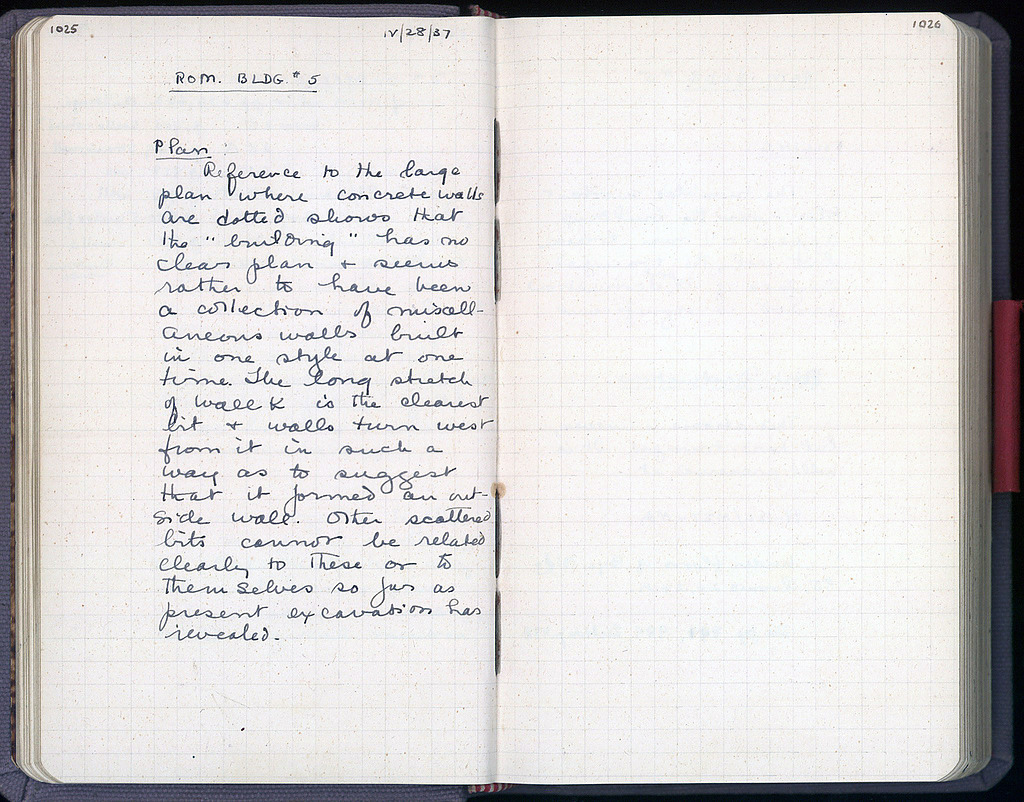 1025
IV/28/37
1026
ROM. BLDG. # 5
Plan
Reference to the large
plan where concrete walls
are dotted shows that
the "building" has no
clear plan + seems
rather to have been
a collection of miscell-
aneous walls built
in one style at one
time. The long stretch
of wall K is the clearest
bit + walls turn west
from it in such a
way as to suggest
that it formed an out-
side wall. Other scattered
bits cannot be related
clearly to these or to
themselves so far as
present excavation has
revealed.